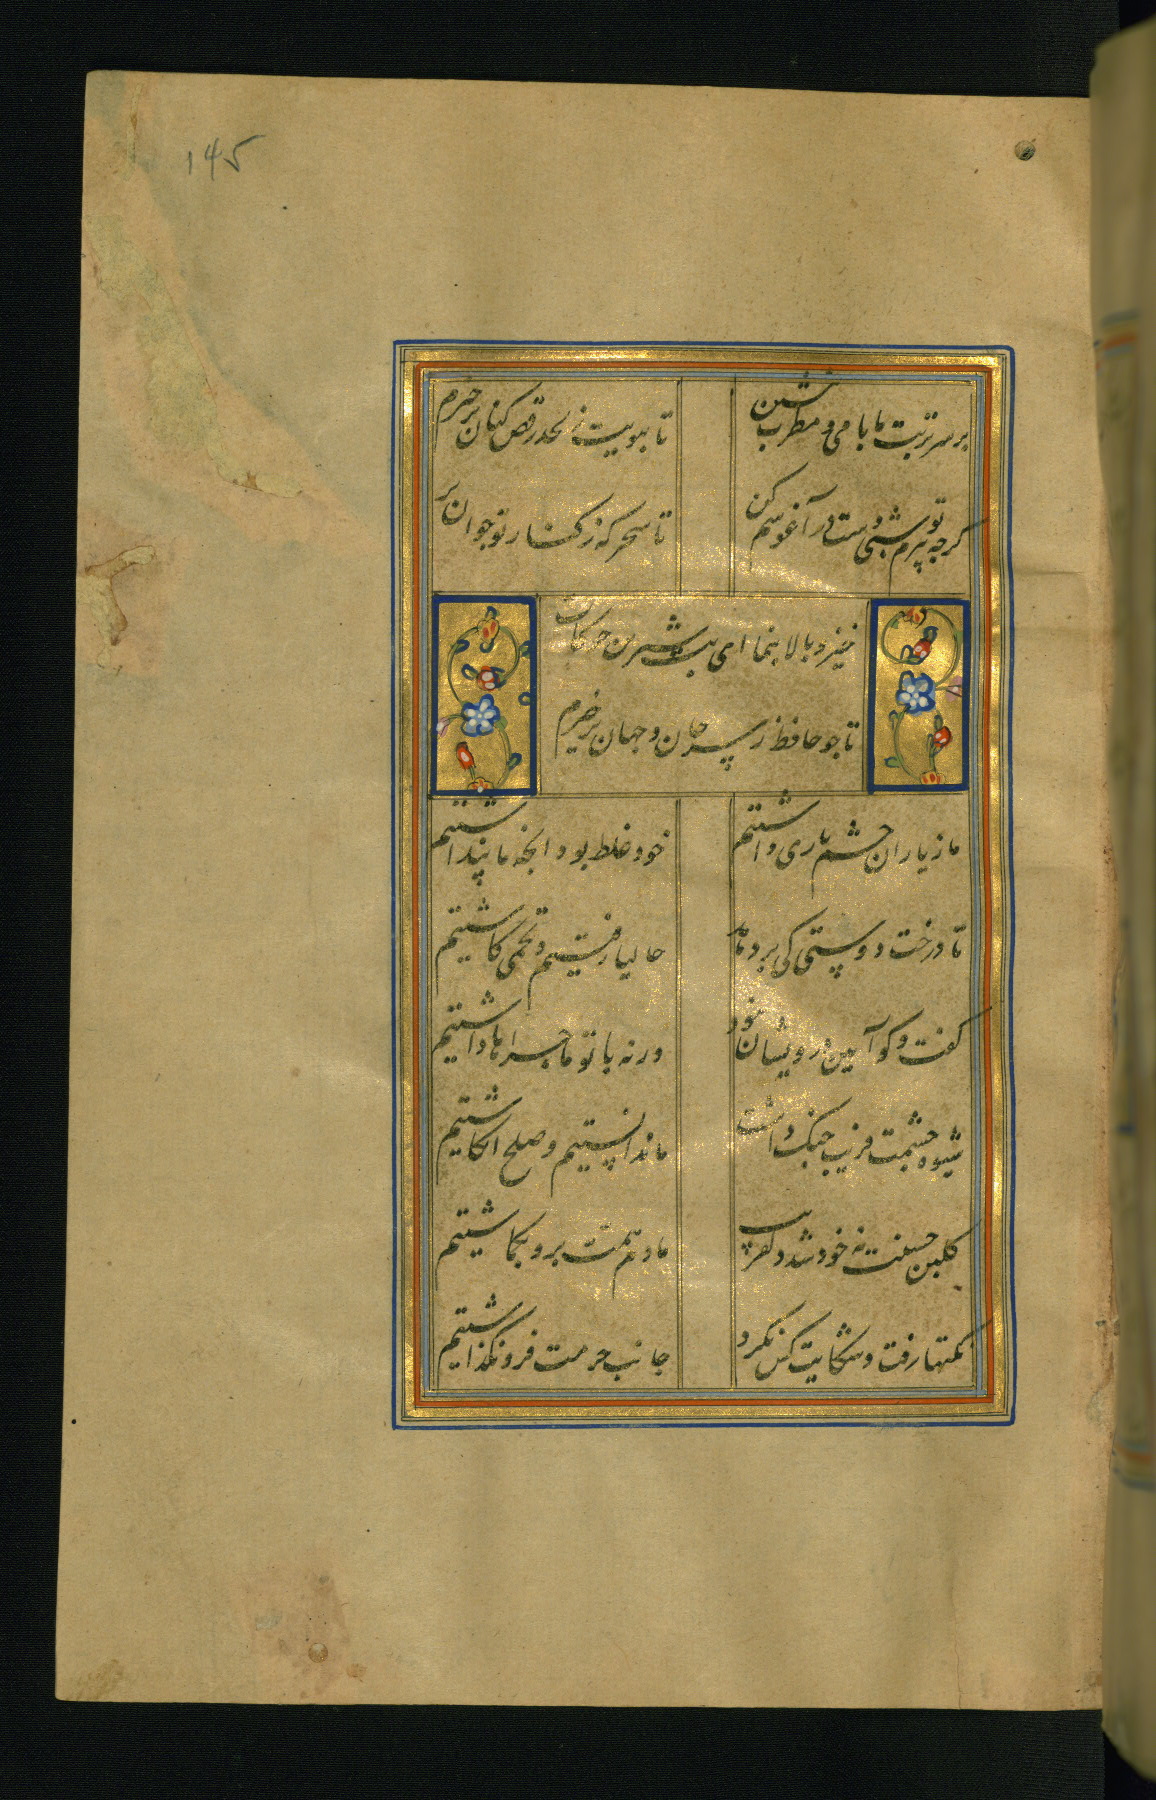 ۱۴۵
بر سر تربت ما با می و مطرب بنشین
تا ببویت ز لحد رقص کنان برخیزم
گرچه پیرم تو شبی دست در آغوشم کن
تا سحرگه ز کنار تو جوان بر
خیز و بالا بنما ای بت شیرین حرکات
تا چو حافظ ز سر جان و جهان برخیزم
ما ز یاران چشم یاری داشتیم
خود غلط بود انچه ما پنداشتیم
تا درخت دوستی کی بر دهد
حالیا رفتیم و تخمی کاشتیم
گفت و گو آیین درویشان نبود
ورنه با تو ماجراها داشتیم
شیوه چشمت فریب جنگ داشت
ما ندانستیم و صلح انگاشتیم
گلبن حسنت نه خود شد دلفریب
ما دم همت برو بگماشتیم
نکتها رفت و شکایت کس نکرد
جانب حرمت فرو نگذاشتیم